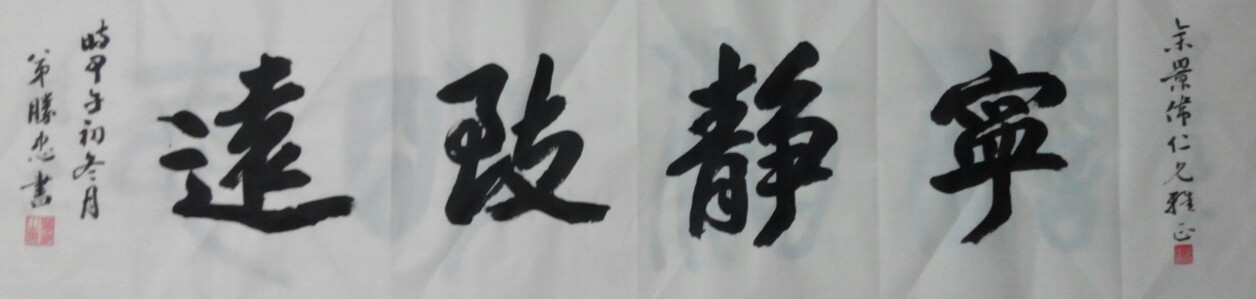 余景偉仁兄雅正
寧靜致遠
時甲午初冬月
弟勝忠書